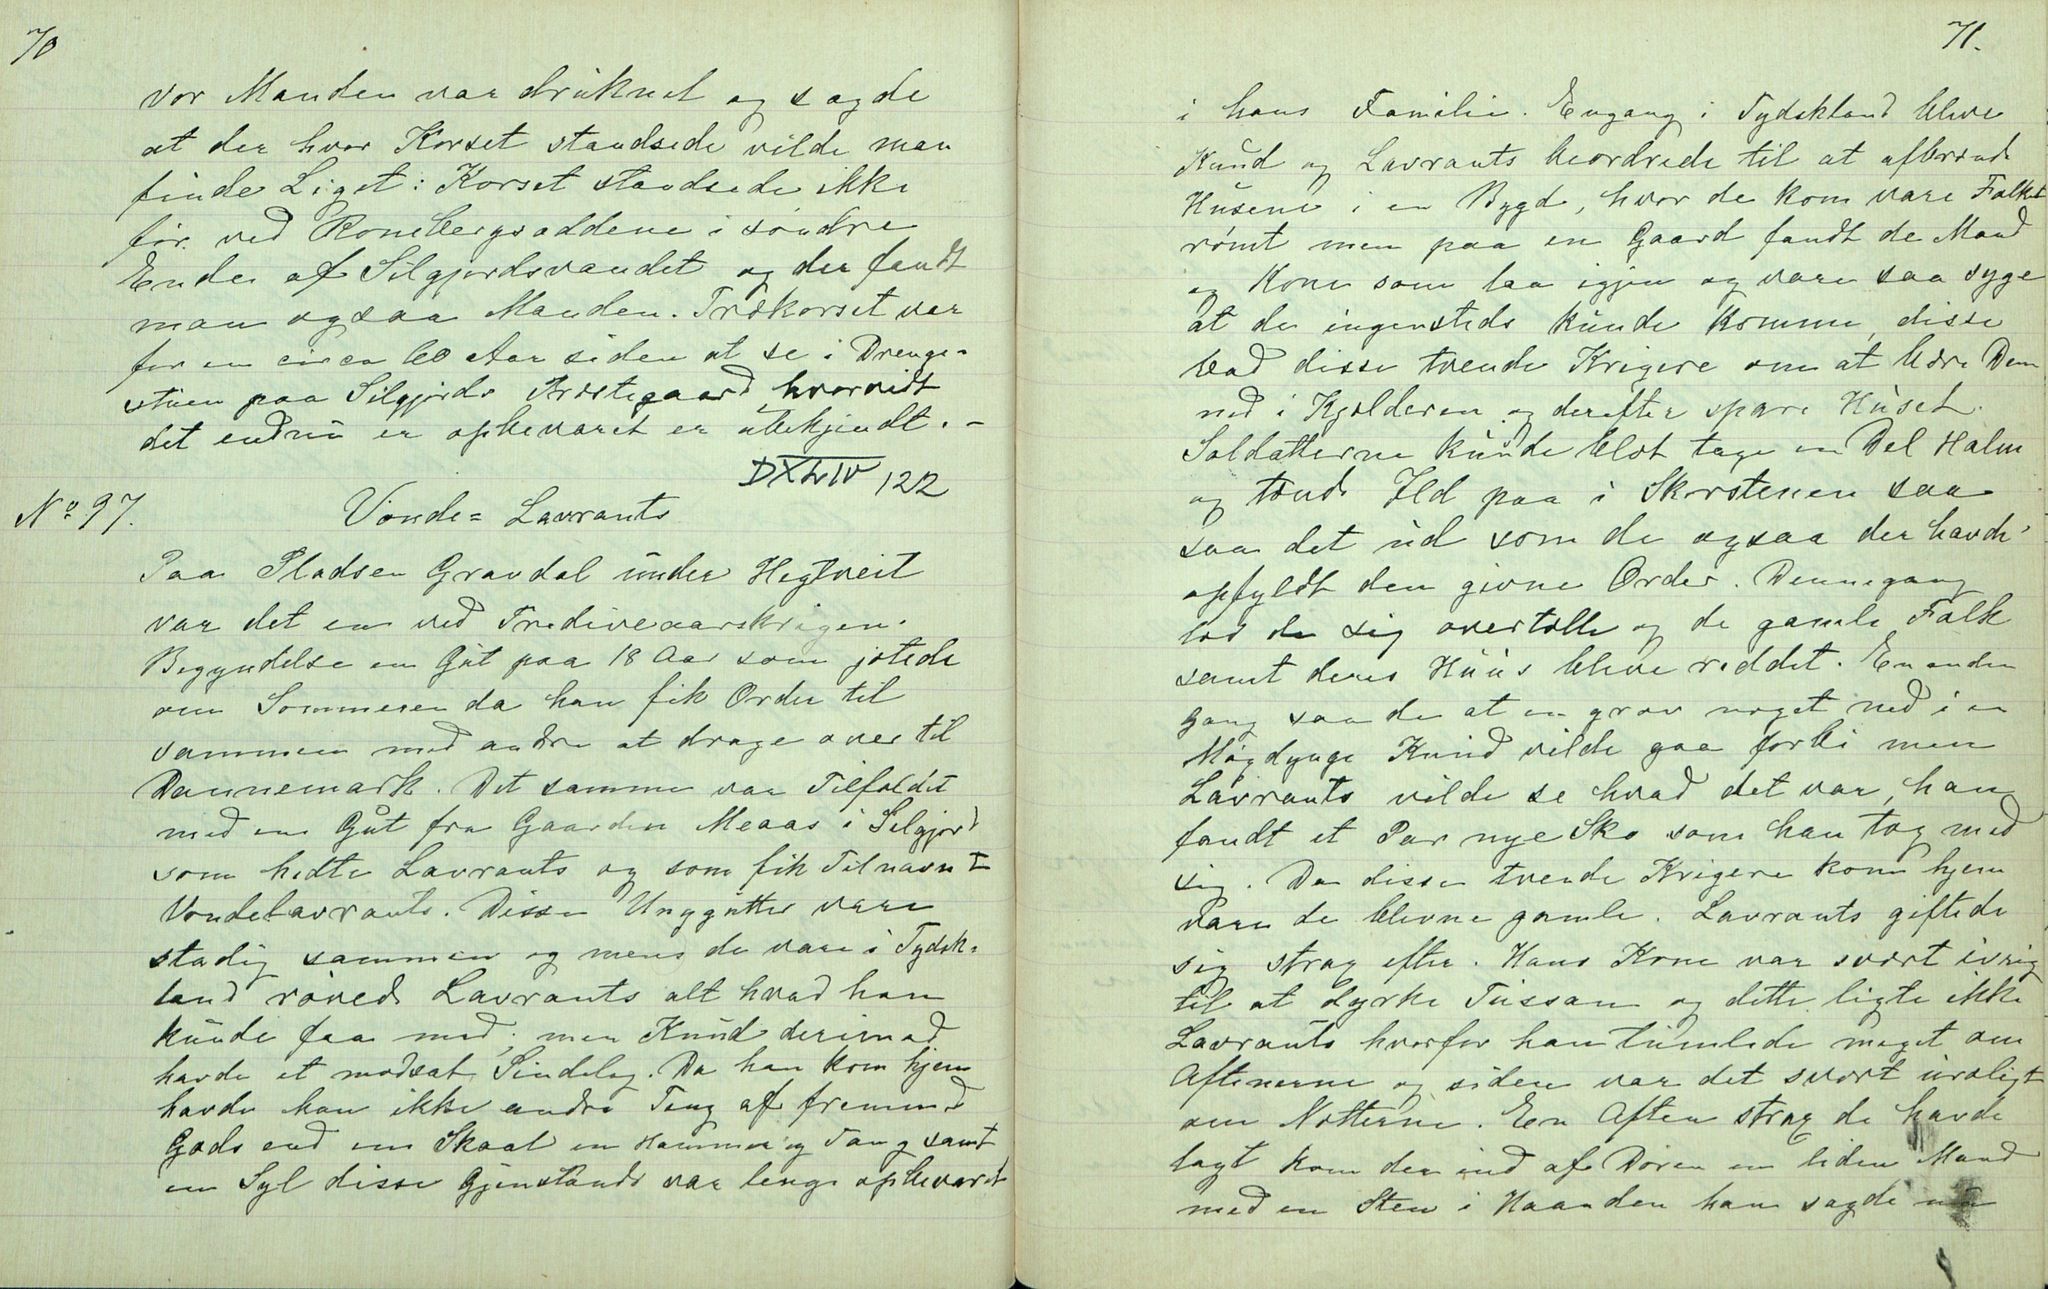 70
vor Manden var druknet og sagde
at der hvor Korset standsede vilde man
finde Liget: Korset standsede ikke
før ved Ronebergsoddene i søndre
Ende af Silgjordsvandet og der fandt
man ogsaa Manden. Trækorset var
for en circa 60 Aar siden at se i Drenge-
stuen paa Silgjords Prestegaard, hvorvidt
det endnu er opbevaret er ubekjendt. -
DXLIV 122
No 97.
Vonde= Lavrants
Paa Pladsen Gravdal under Hegtveit
var det en ved Trediveaarskrigen.
Begyndelse en Gut paa 18 Aar som jætede
om Sommeren da han fik Order til
sammen med andre at drage over til
Dannemark. Det samme var Tilfældet
med en Gut fra Gaarden Meaas i Silgjord
som hedte Lavrants og som fik Tilnavnt
Vondelavrants. Disse Unggutter vare
stadig sammen og mens de vare i Tydsk-
land røvede Lavrants alt hvad han
kunde faa med; men Knud derimod
havde et modsat Sindelag. Da han kom hjem
havde han ikke andre Ting af fremmed
Gods end en Skaal en Hammer og Tang samt
en Syl disse Gjenstande var lenge opbevaret
71.
i hans Familie. Engang i Tydskland bleve
Knud og Lavrants beordrede til at afbrænde
Husene i en Bygd, hvor de kom vare Folket
rømt men paa en Gaard fandt de Mand
og Kone som laa igjen og vare saa syge
at de ingensteds kunde komme, disse
bad disse tvende Krigere om at bære Dem
ned i Kjelderen og derefter spare Huset.
Soldatterne kunde blot tage en Del Halm
og tænde Ild paa i Skorstenen saa
saa det ud som de ogsaa der havde
opfyldt den givne Order. Dennegang
lod de sig overtalle og de gamle Folk
samt deres Huus bleve reddet. En anden
Gang saa de at en grov noget ned i en
Møgdynge Knud vilde gaa forbi men
Lavrants vilde se hvad det var, han
fandt et Par nye Sko som han tog med
sig. Da disse tvende Krigere kom hjem
vare de blevne gamle. Lavrants giftede
sig strax efter. Hans Kone var svært ivrig
til at dyrke Tussan og dette ligte ikke
Lavrants hvorfor han tumlede meget om
Aftenerne og siden var det svært uroligt
om Nætterne. En Aften strax de havde
lagt kom der ind af Døren en liden Mand
med en Sten i Haanden han sagde nu